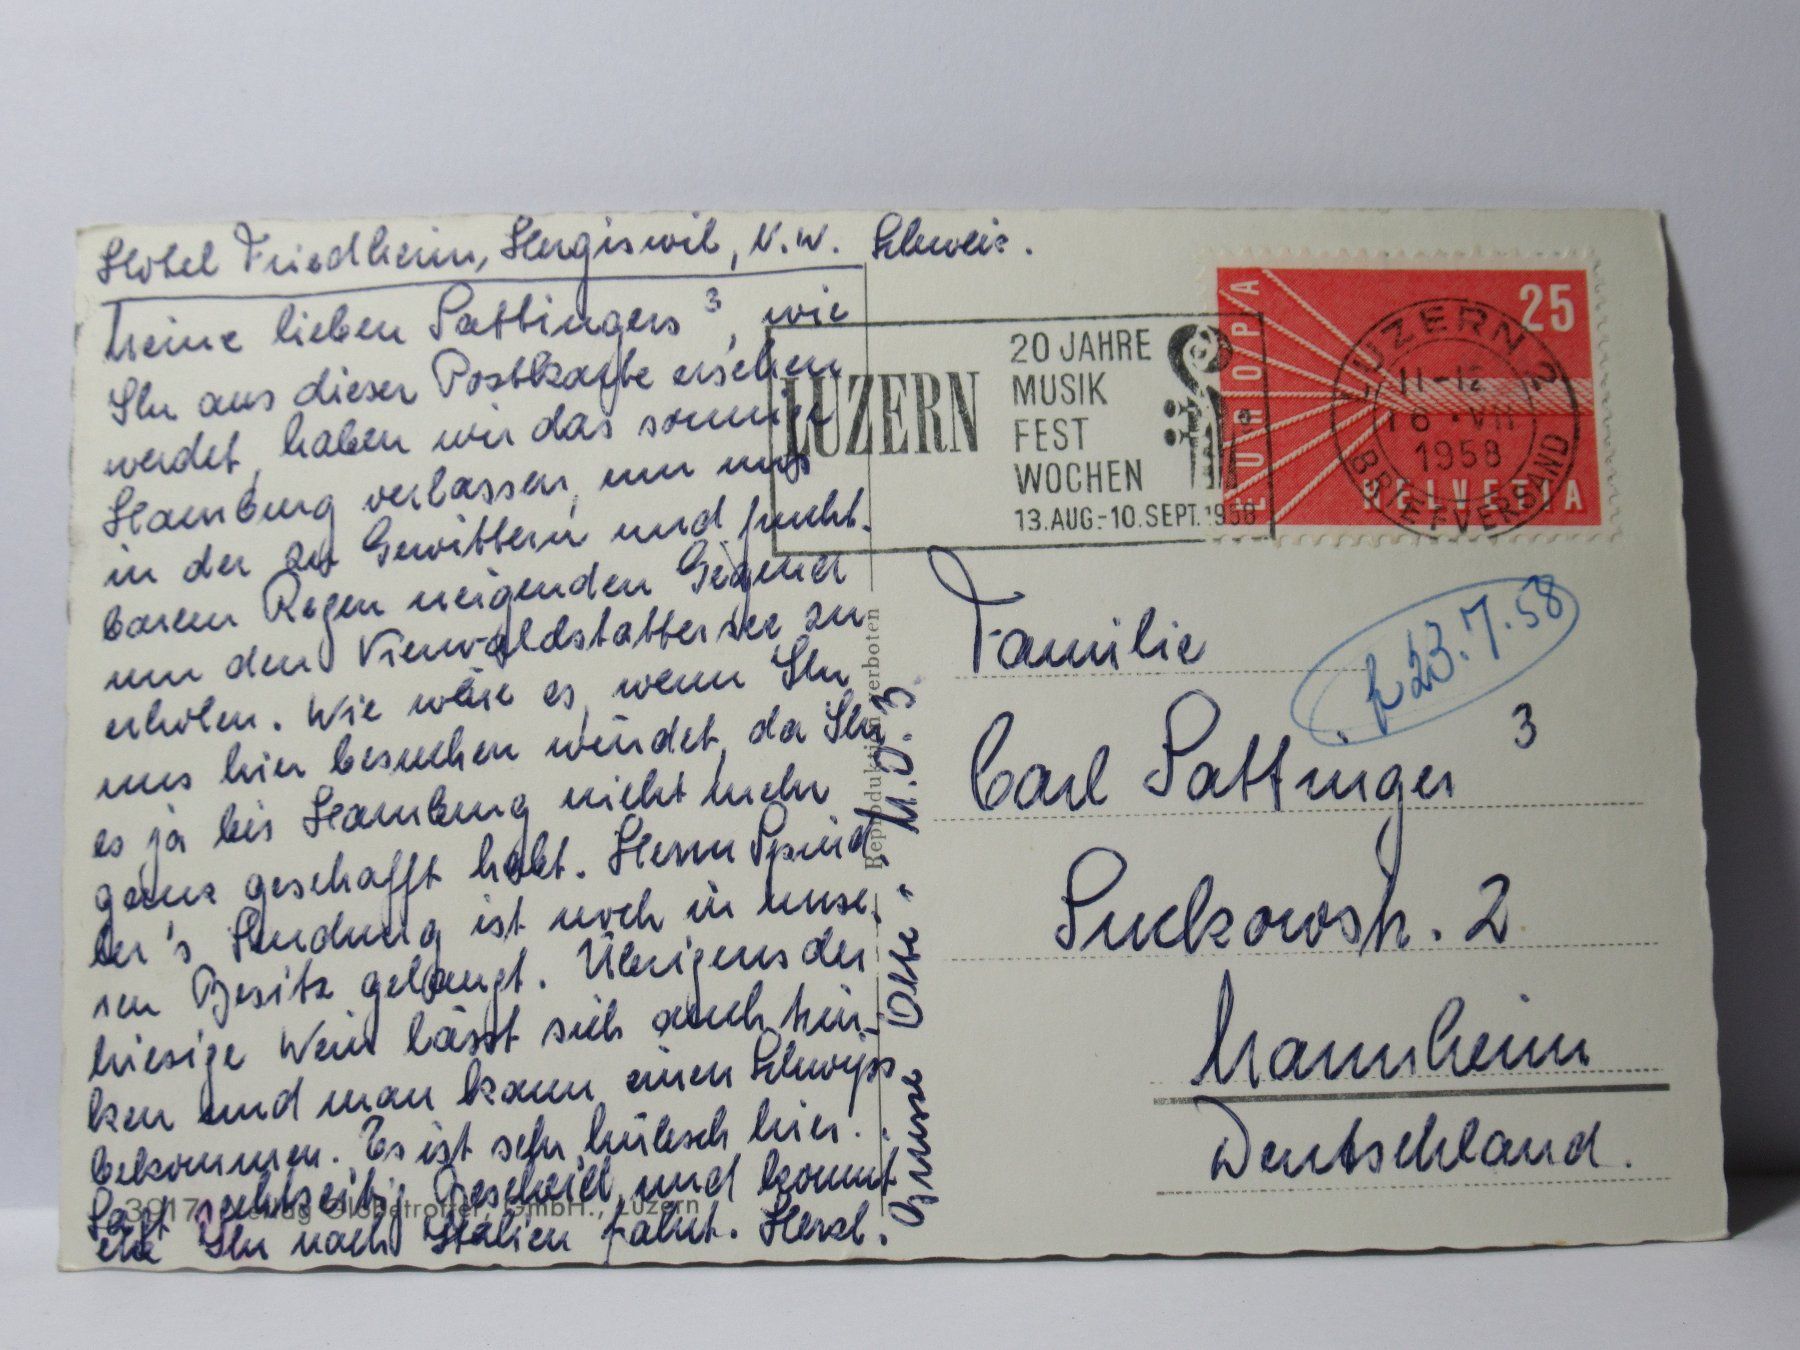 Hotel Friedheim, Hergiswil, N.W. Schweiz.
Meine lieben Sattingers 3, wie
Ihr aus dieser Postkarte ersehen
werdet, haben wir das sonnige
Hamburg verlassen, um uns
in der zu Gewittern und frucht-
barem Regen neigenden Gegend
um den Vierwaldstattersee zu
erholen. Wie wäre es, wenn Ihr
uns hier besuchen würdet, da Ihr
es ja bis Hamburg nicht mehr
ganz geschafft habt. Herrn Spind-
ler's Sendung ist noch in unse-
ren Besitz gelangt. Übrigens der
hiesige Wein lässt sich auch trin-
ken und man kann einen Schwips
bekommen. Es ist sehr hübsch hier.
Sagt rechtzeitig Bescheid und kommt
ehe Ihr nach Italien fahrt. Herzl.
Grüsse
M.O.3.
3917 Verlag Globetrotter, GmbH., Luzern
Reproduktion verboten
LUZERN
20 JAHRE
MUSIK
FEST
WOCHEN
13.AUG.-10.SEPT.1958
EUROPA
25
HELVETIA
LUZERN 2
11-12
16.VII
1958
BRIEFVERSAND
23.7.58
Familie
Carl Sattinger 3
Suckowstr. 2
Mannheim
Deutschland.